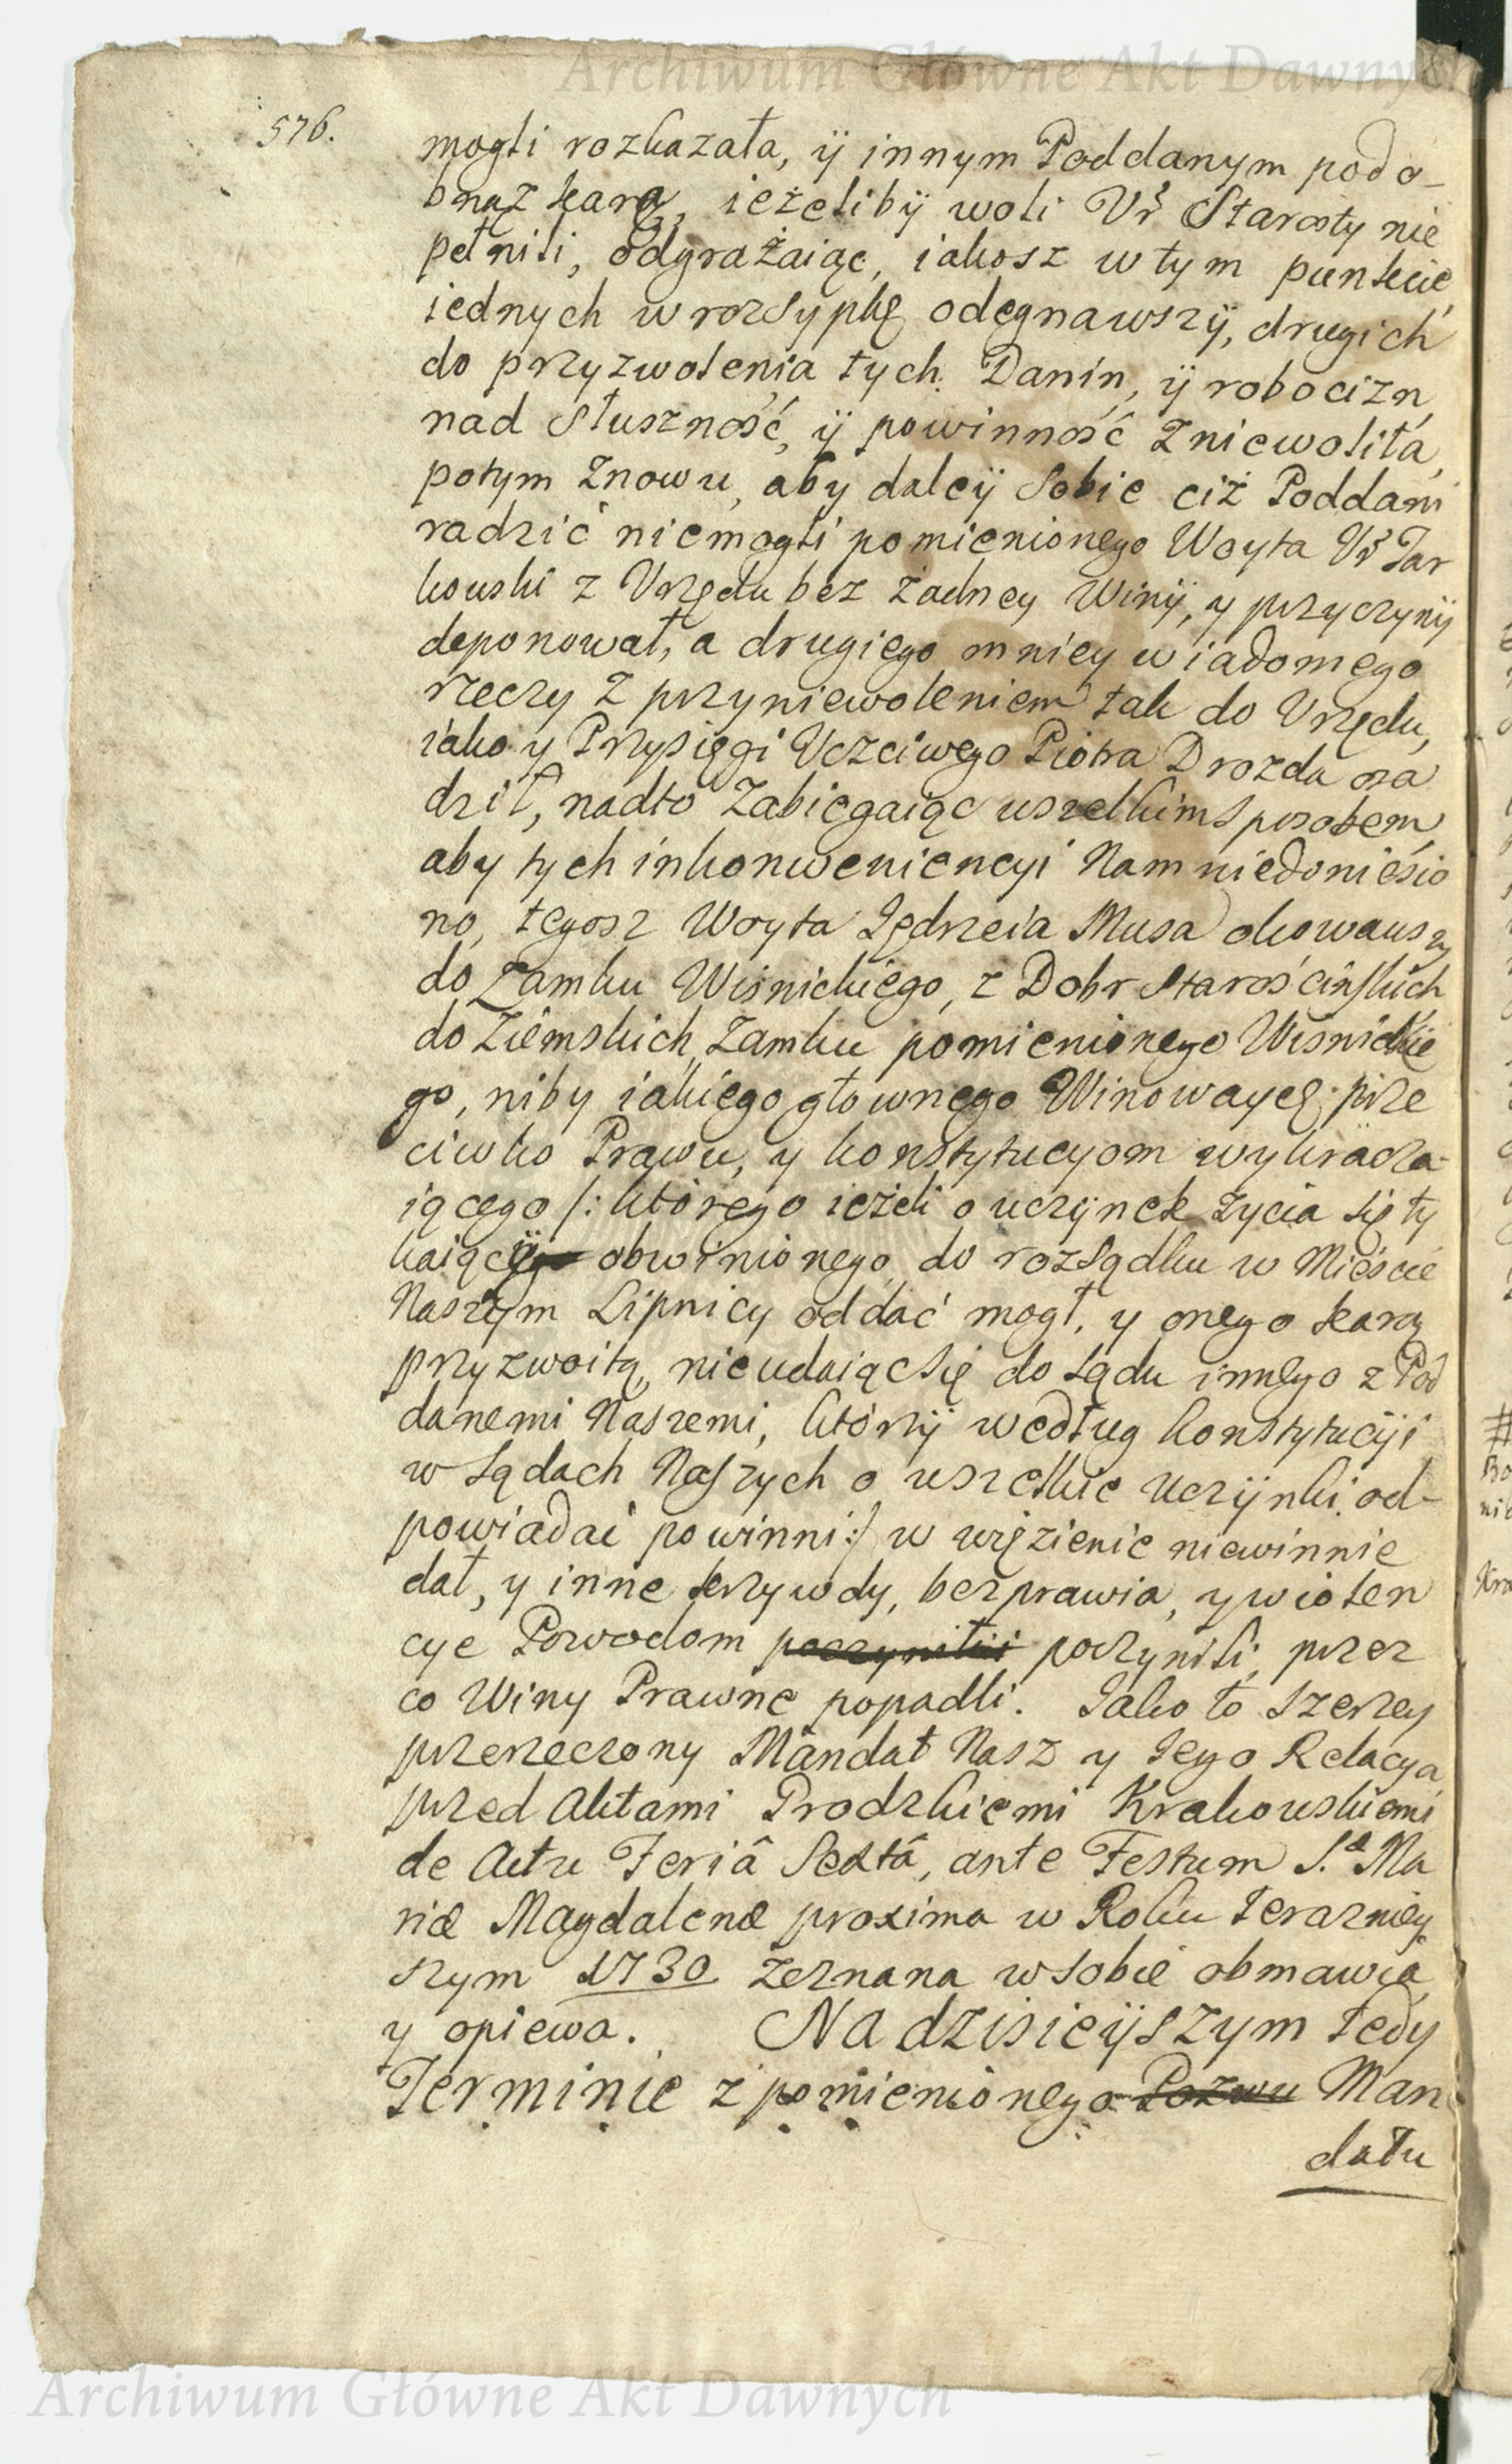 Archiwum Główne Akt Dawnych
576.
mogli rozkazała, ÿ innym Poddanym podo-
bnąż karą, ieżelibÿ woli Vr Starosty nie
pełnili, odgrażaiąc, iakosz w tym punkcie
iednych w rozsypkę odegnawszÿ, drugich
do przyzwolenia tych Danin, ÿ robocizn
nad słuszność, ÿ powinność zniewoliła,
potym znowu, aby daleÿ sobie ciż Poddani
radzić niemogli pomienionego Woyta Vr Jar
kowski z Vrzędu bez żadney Winÿ, y przyczynÿ
deponował, a drugiego mniey wiadomego
rzeczy z przyniewoleniem tak do Vrzędu,
iako y Przysięgi Vczciwego Piotra Drozda osa
dził, nadto zabiegaiąc wszelkim sposobem
aby tych inkonweniencyi Nam niedoniesio
no, tegosz Woyta Jędrzeia Musa okowawszy
do Zamku Wiśnickiego, z Dobr Starościńskich
do Ziemskich Zamku pomienionego Wiśnickie
go, niby iakiego głownego Winowaycę prze
ciwko Prawu, y konstytucyom wykracza-
iącego /: ktorego ieżeli o uczÿnek życia się ty
kaiącÿ obwinionego do rozsądku w Mieście
Naszym Lipnicy oddać mogł, y onego karą
przyzwoitą, nieudaiąc się do sądu innego z Pod
danemi Naszemi, ktorzÿ według konstytucÿi
w sądach Naszych o wszelkie uczÿnki od-
powiadać powinni :/ w więzienie niewinnie
dał, y inne krzywdy, bezprawia, y wiolen
cye Powodom poczynili poczynili, przez
co Winy Prawne popadli. Jako to szerzey
przerzeczony Mandat Nasz y Jego Relacya
przed Aktami Grodzkiemi Krakowskiemi
de Actu Feriâ Sextâ, ante Festum S.ae Ma
riæ Magdalenæ proxima w Roku teraznieÿ
szym 1730 zeznana w sobie obmawia
y opiewa. Na dzisieÿszym tedy
Terminie z pomienionego Pozwu Man
datu
Archiwum Główne Akt Dawnych